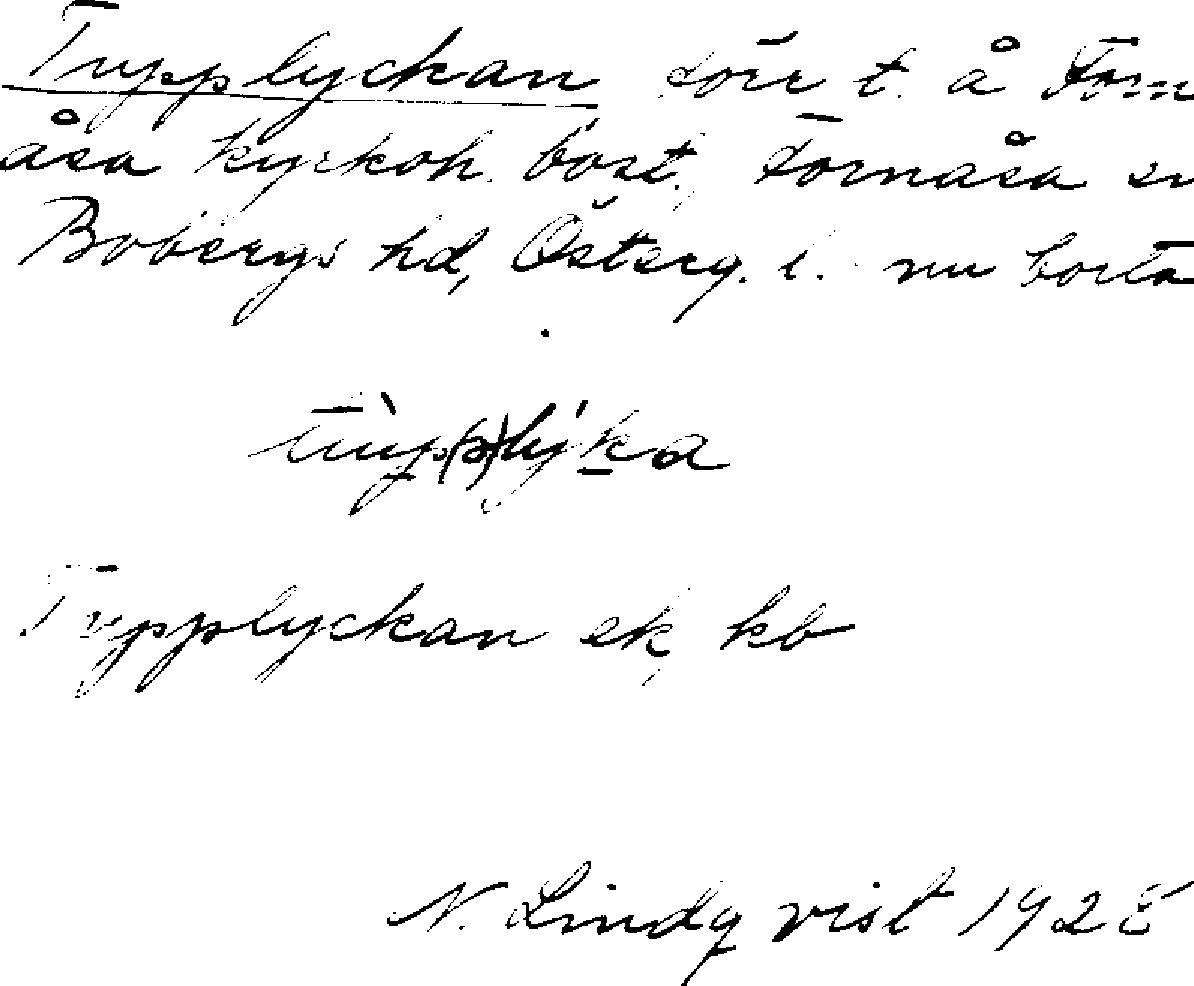 Trypplyckan förr t. å Forn=
åsa kyrkoh. bost., Fornåsa sn
Bobergs hd, Österg. l. nu borta
Trypplyckan ek, kb
N. Lindqvist